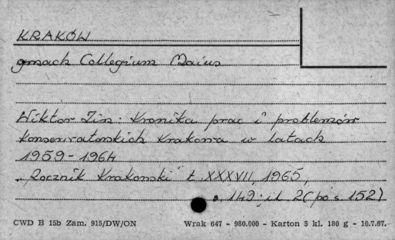 KRAKÓW
gmach Collegium Maius
Wiktor Zin: Kronika prac i problemów
konserwatorskich Krakowa w latach
1959-1964
"Rocznik Krakowski" t. XXXVII, 1965,
s. 149; il. 2 (po s. 152)
CWD B 15b Zam. 915/DW/ON Wrak 647 - 980.000 - Karton 3 kl. 180 g - 10.7.67.